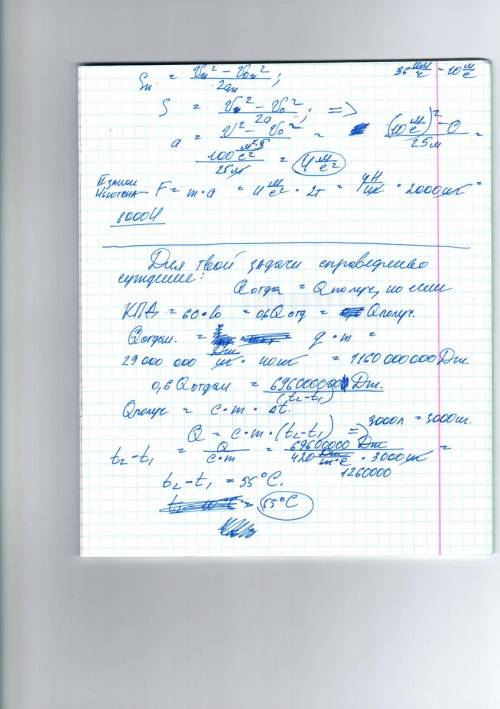 Sₙ = Vₙ² - V₀ₙ² / 2aₙ ; 36 км/ч = 10 м/с
S = V² - V₀² / 2a ; =>
a = V² - V₀² / = (10 м/с)² - 0 / 25м =
100 м²/с² / 25м = 4 м/с²
II закон Ньютона - F = m · a = 4 м/с² · 2т = 4Н/кг · 2000кг =
8000Н
Для твой задачи справедливо
суждение:
Qотда = Qполуч, но если
КПД = 60%, то = 0,6Qотд = Qполуч.
Qотдан. = q · m =
29 000 000 Дж/кг · 40кг = 1160 000 000 Дж.
0,6 Qотдан = 696000000 Дж.
Qполуч = c · m · Δt. (t₂-t₁)
Q = c · m · (t₂-t₁) => 3000л = 3000кг.
t₂-t₁ = Q / c · m = 69600000 Дж / 420 · 3000кг =
1260000
t₂-t₁ = 55°C.
55°C